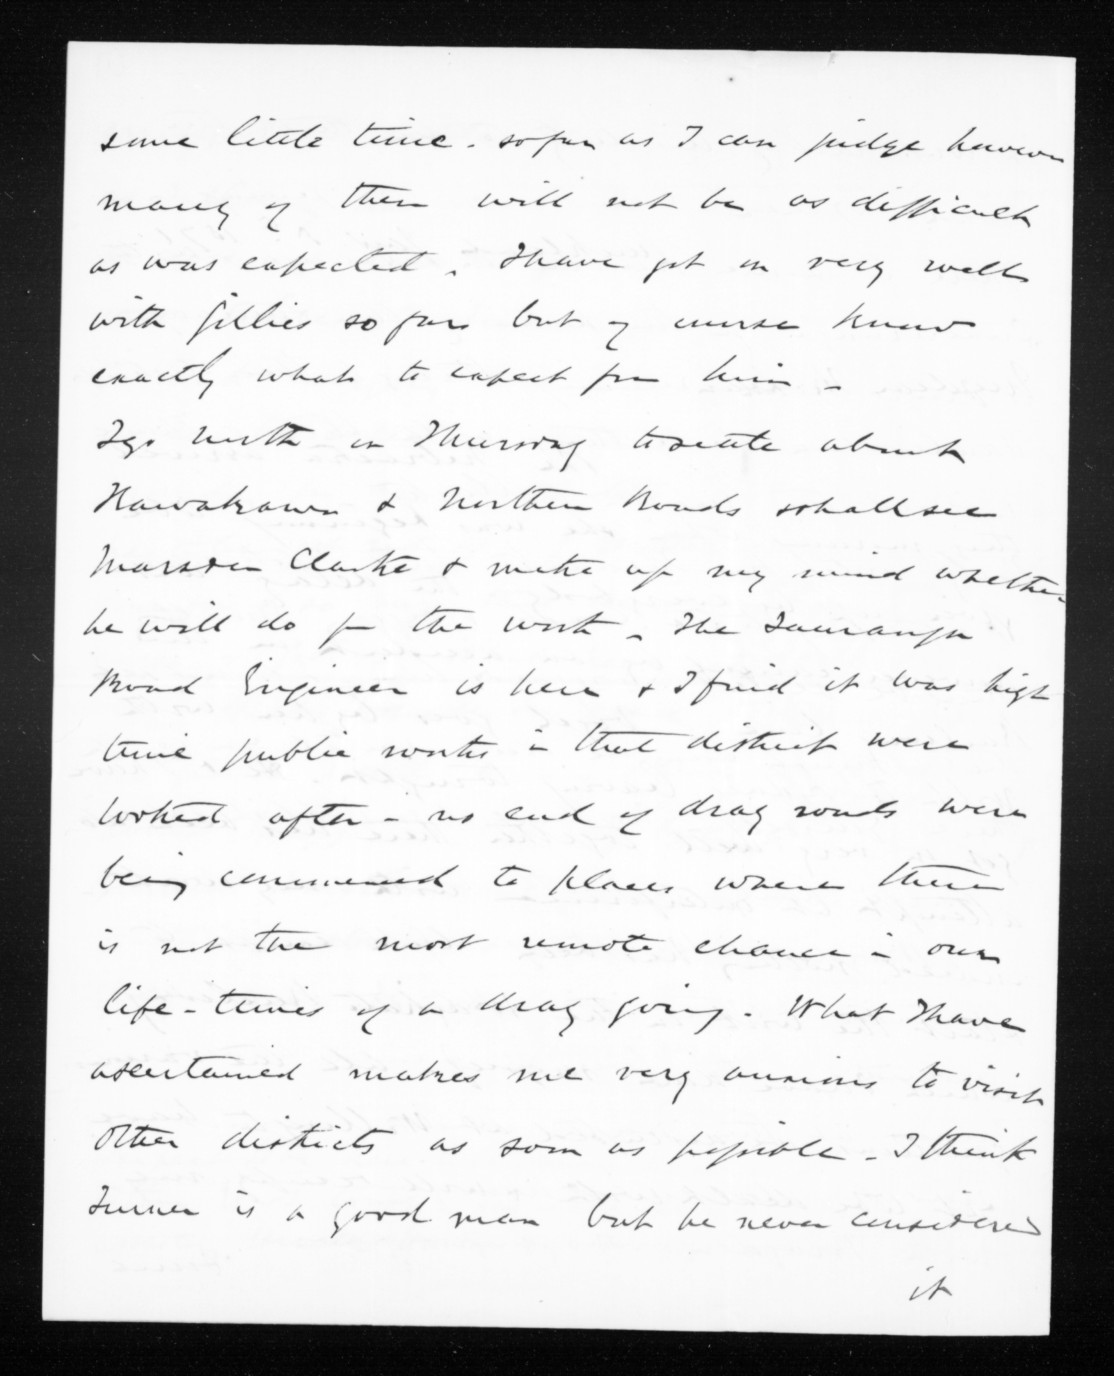 some little time. so far as I can judge however
many of them will not be as difficult
as was expected. I have got on very well
with Gillies so far but of course know
exactly what to expect from him -
I go north on Thursday to see about
Kawakawa & Northern Roads & shall see
Marsden Clarke & make up my mind whether
he will do for the work - The Tauranga
Road Engineer is here & I find it was high
time public works in that district were
looked after - no end of dray roads were
being commenced to places where there
is not the most remote chance in our
life-times of a dray going. What I have
ascertained makes me very anxious to visit
other districts as soon as possible - I think
Turner is a good man but he never considered
it